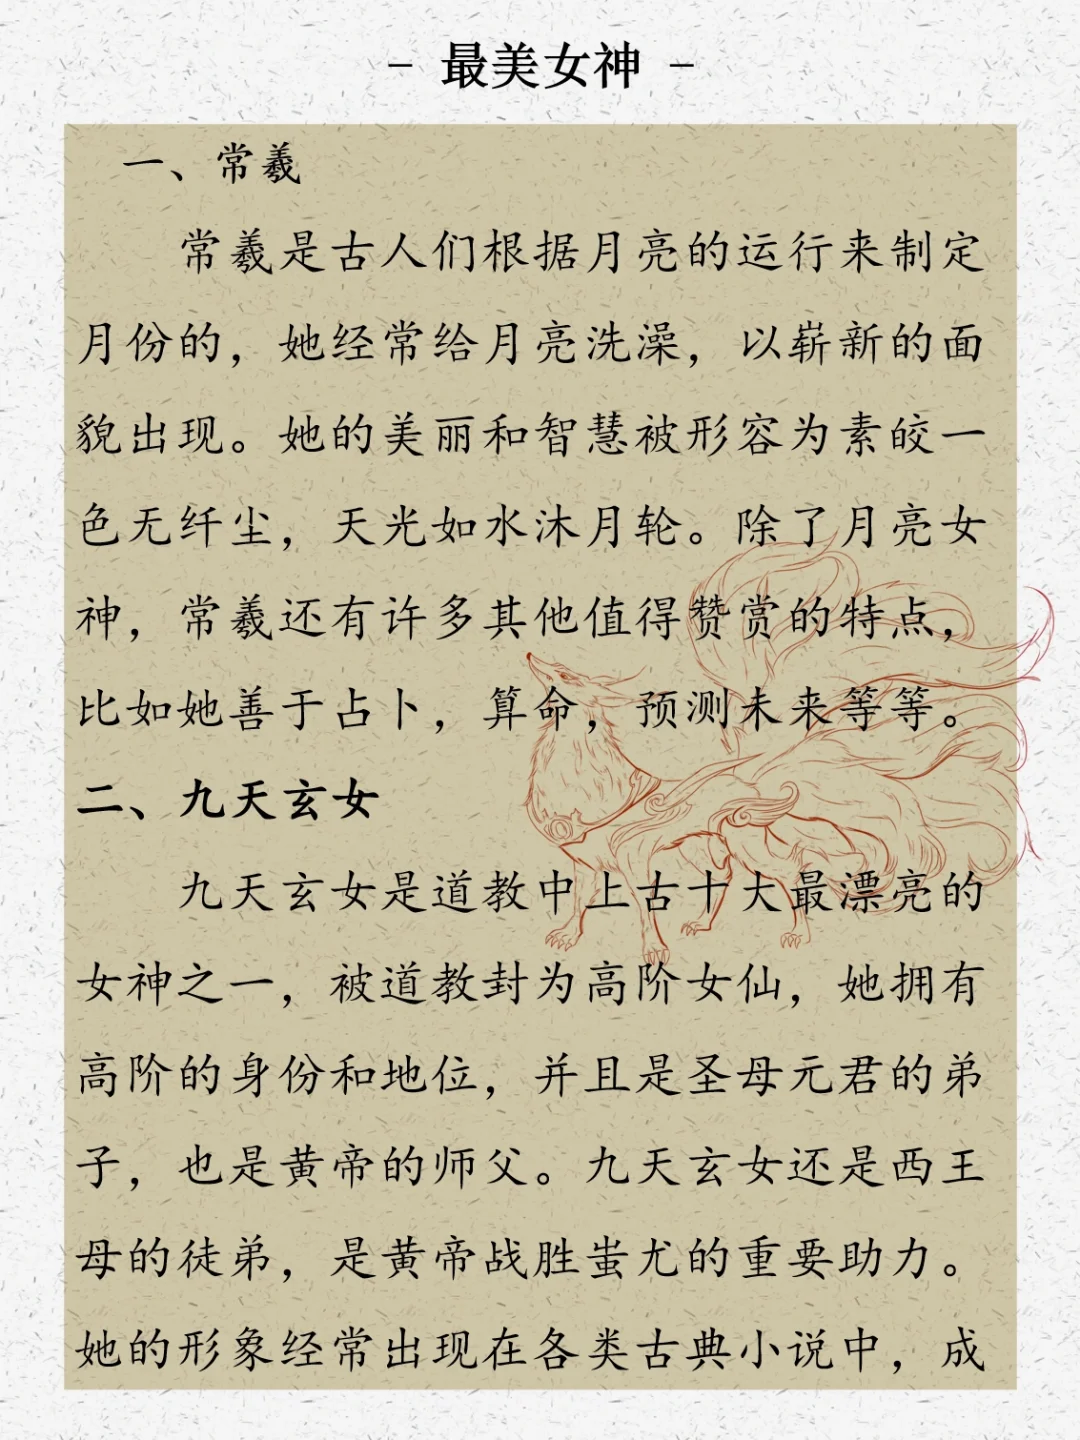 - 最美女神 -
一、常羲
常羲是古人们根据月亮的运行来制定
月份的，她经常给月亮洗澡，以崭新的面
貌出现。她的美丽和智慧被形容为素皎一
色无纤尘，天光如水沐月轮。除了月亮女
神，常羲还有许多其他值得赞赏的特点，
比如她善于占卜，算命，预测未来等等。
二、九天玄女
九天玄女是道教中上古十大最漂亮的
女神之一，被道教封为高阶女仙，她拥有
高阶的身份和地位，并且是圣母元君的弟
子，也是黄帝的师父。九天玄女还是西王
母的徒弟，是黄帝战胜蚩尤的重要助力。
她的形象经常出现在各类古典小说中，成